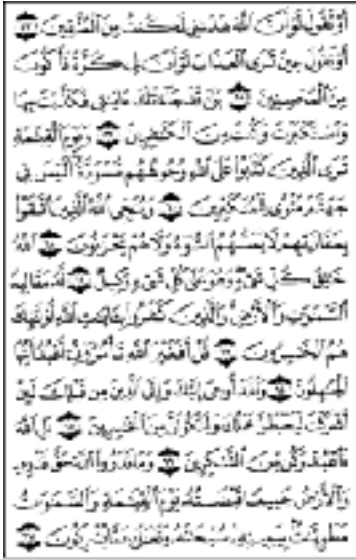 أَوْ تَقُولَ لَوْ أَنَّ ٱللَّهَ هَدَىٰنِى لَكُنتُ مِنَ ٱلْمُتَّقِينَ
أَوْ تَقُولَ حِينَ تَرَى ٱلْعَذَابَ لَوْ أَنَّ لِى كَرَّةً فَأَكُونَ
مِنَ ٱلْمُحْسِنِينَ بَلَىٰ قَدْ جَآءَتْكَ ءَايَٰتِى فَكَذَّبْتَ بِهَا
وَٱسْتَكْبَرْتَ وَكُنتَ مِنَ ٱلْكَٰفِرِينَ وَيَوْمَ ٱلْقِيَٰمَةِ
تَرَى ٱلَّذِينَ كَذَبُوا۟ عَلَى ٱللَّهِ وُجُوهُهُم مُّسْوَدَّةٌ أَلَيْسَ فِى
جَهَنَّمَ مَثْوًى لِّلْمُتَكَبِّرِينَ وَيُنَجِّى ٱللَّهُ ٱلَّذِينَ ٱتَّقَوْا۟
بِمَفَازَتِهِمْ لَا يَمَسُّهُمُ ٱلسُّوٓءُ وَلَا هُمْ يَحْزَنُونَ ٱللَّهُ
خَٰلِقُ كُلِّ شَىْءٍ وَهُوَ عَلَىٰ كُلِّ شَىْءٍ وَكِيلٌ لَّهُۥ مَقَالِيدُ
ٱلسَّمَٰوَٰتِ وَٱلْأَرْضِ وَٱلَّذِينَ كَفَرُوا۟ بِـَٔايَٰتِ ٱللَّهِ أُو۟لَٰٓئِكَ
هُمُ ٱلْخَٰسِرُونَ قُلْ أَفَغَيْرَ ٱللَّهِ تَأْمُرُوٓنِّىٓ أَعْبُدُ أَيُّهَا
ٱلْجَٰهِلُونَ وَلَقَدْ أُوحِىَ إِلَيْكَ وَإِلَى ٱلَّذِينَ مِن قَبْلِكَ لَئِنْ
أَشْرَكْتَ لَيَحْبَطَنَّ عَمَلُكَ وَلَتَكُونَنَّ مِنَ ٱلْخَٰسِرِينَ بَلِ ٱللَّهَ
فَٱعْبُدْ وَكُن مِّنَ ٱلشَّٰكِرِينَ وَمَا قَدَرُوا۟ ٱللَّهَ حَقَّ قَدْرِهِۦ
وَٱلْأَرْضُ جَمِيعًا قَبْضَتُهُۥ يَوْمَ ٱلْقِيَٰمَةِ وَٱلسَّمَٰوَٰتُ
مَطْوِيَّٰتٌۢ بِيَمِينِهِۦ سُبْحَٰنَهُۥ وَتَعَٰلَىٰ عَمَّا يُشْرِكُونَ